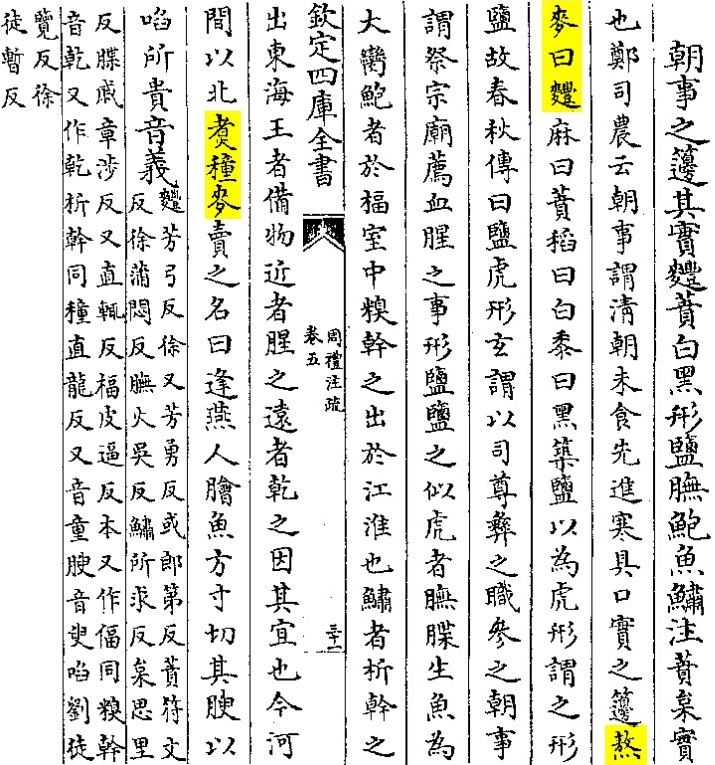 朝事之籩其實麷蕡白黑形鹽膴鮑魚鱐注蕡枲實
也鄭司農云朝事謂清朝未食先進寒具口實之籩熬
麥曰麷麻曰蕡稻曰白黍曰黑築鹽以為虎形謂之形
鹽故春秋傳曰鹽虎形玄謂以司尊彝之職參之朝事
謂祭宗廟薦血腥之事形鹽鹽之似虎者膴䐑生魚為
大臠鮑者於福室中糗幹之出於江淮也鱐者析幹之
欽定四庫全書
周禮注疏
卷五
三十一
出東海王者備物近者腥之遠者乾之因其宜也今河
間以北煑種麥賣之名曰逢燕人膾魚方寸切其腴以
啗所貴音義
麷芳弓反徐又芳勇反或郎第反蕡符文
反徐蒲悶反膴火吳反鱐所求反枲思里
反䐑戚章涉反又直輒反福皮逼反本又作偪同糗幹
音乾又作乾析幹同種直龍反又音童腴音臾啗劉徒
覽反徐
徒暫反